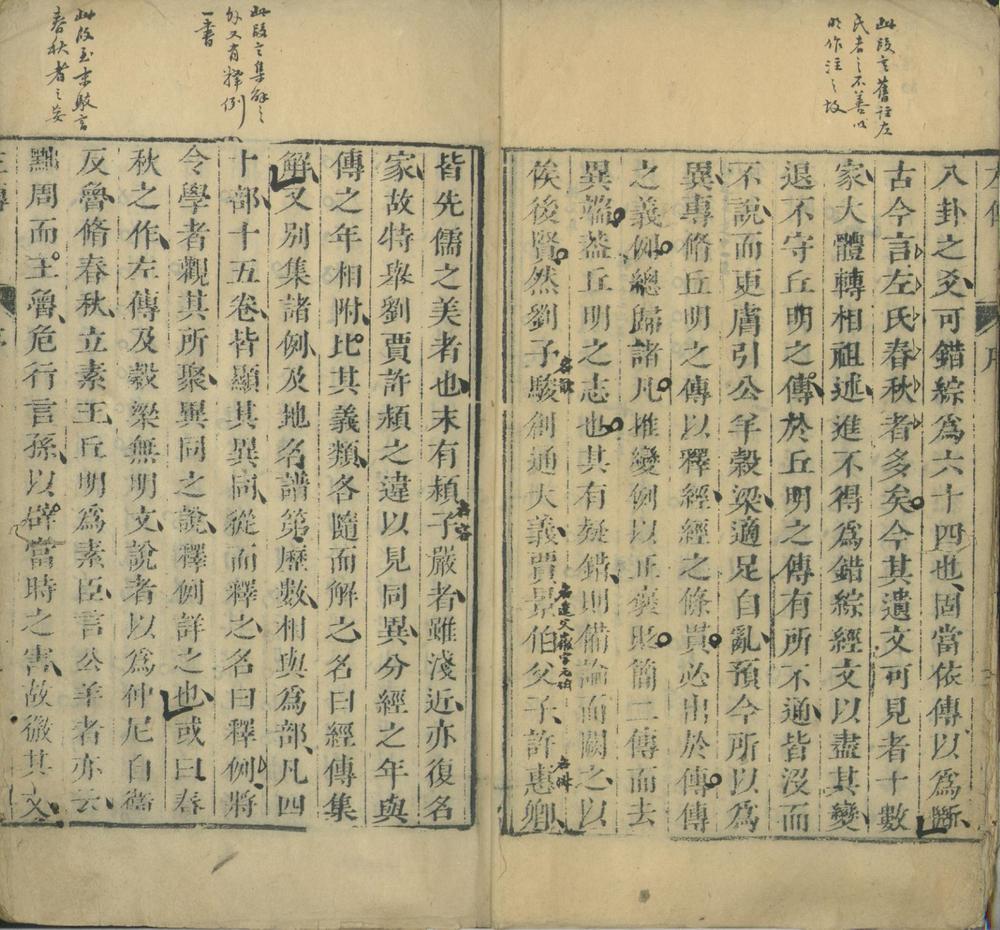 此段言舊註左
氏者之不善以
明作注之故
八卦之爻可錯綜爲六十四也固當依傳以爲斷
古今言左氏春秋者多矣今其遺文可見者十數
家大體轉相祖述進不得爲錯綜經文以盡其變
退不守丘明之傳於丘明之傳有所不通皆沒而
不說而更膚引公羊穀梁適足自亂預今所以爲
異專脩丘明之傳以釋經經之條貫必出於傳傳
之義例總歸諸凡推變例以正褒貶簡二傳而去
異端葢丘明之志也其有疑錯則備論而闕之以
俟後賢然劉子駿創通大義賈景伯父子許惠卿
名歆
名逵父徽字元伯
名淑
此段言集解之
外又有釋例
一書
此段至末駁言
春秋者之妄
皆先儒之美者也末有潁子嚴者雖淺近亦復名
名容
家故特舉劉賈許潁之違以見同異分經之年與
傳之年相附比其義類各隨而解之名曰經傳集
解又別集諸例及地名譜第歷數相與爲部凡四
十部十五卷皆顯其異同從而釋之名曰釋例將
令學者觀其所聚異同之說釋例詳之也或曰春
秋之作左傳及穀梁無明文說者以爲仲尼自衞
反魯脩春秋立素王丘明爲素臣言公羊者亦云
黜周而王魯危行言孫以辟當時之害故微其文